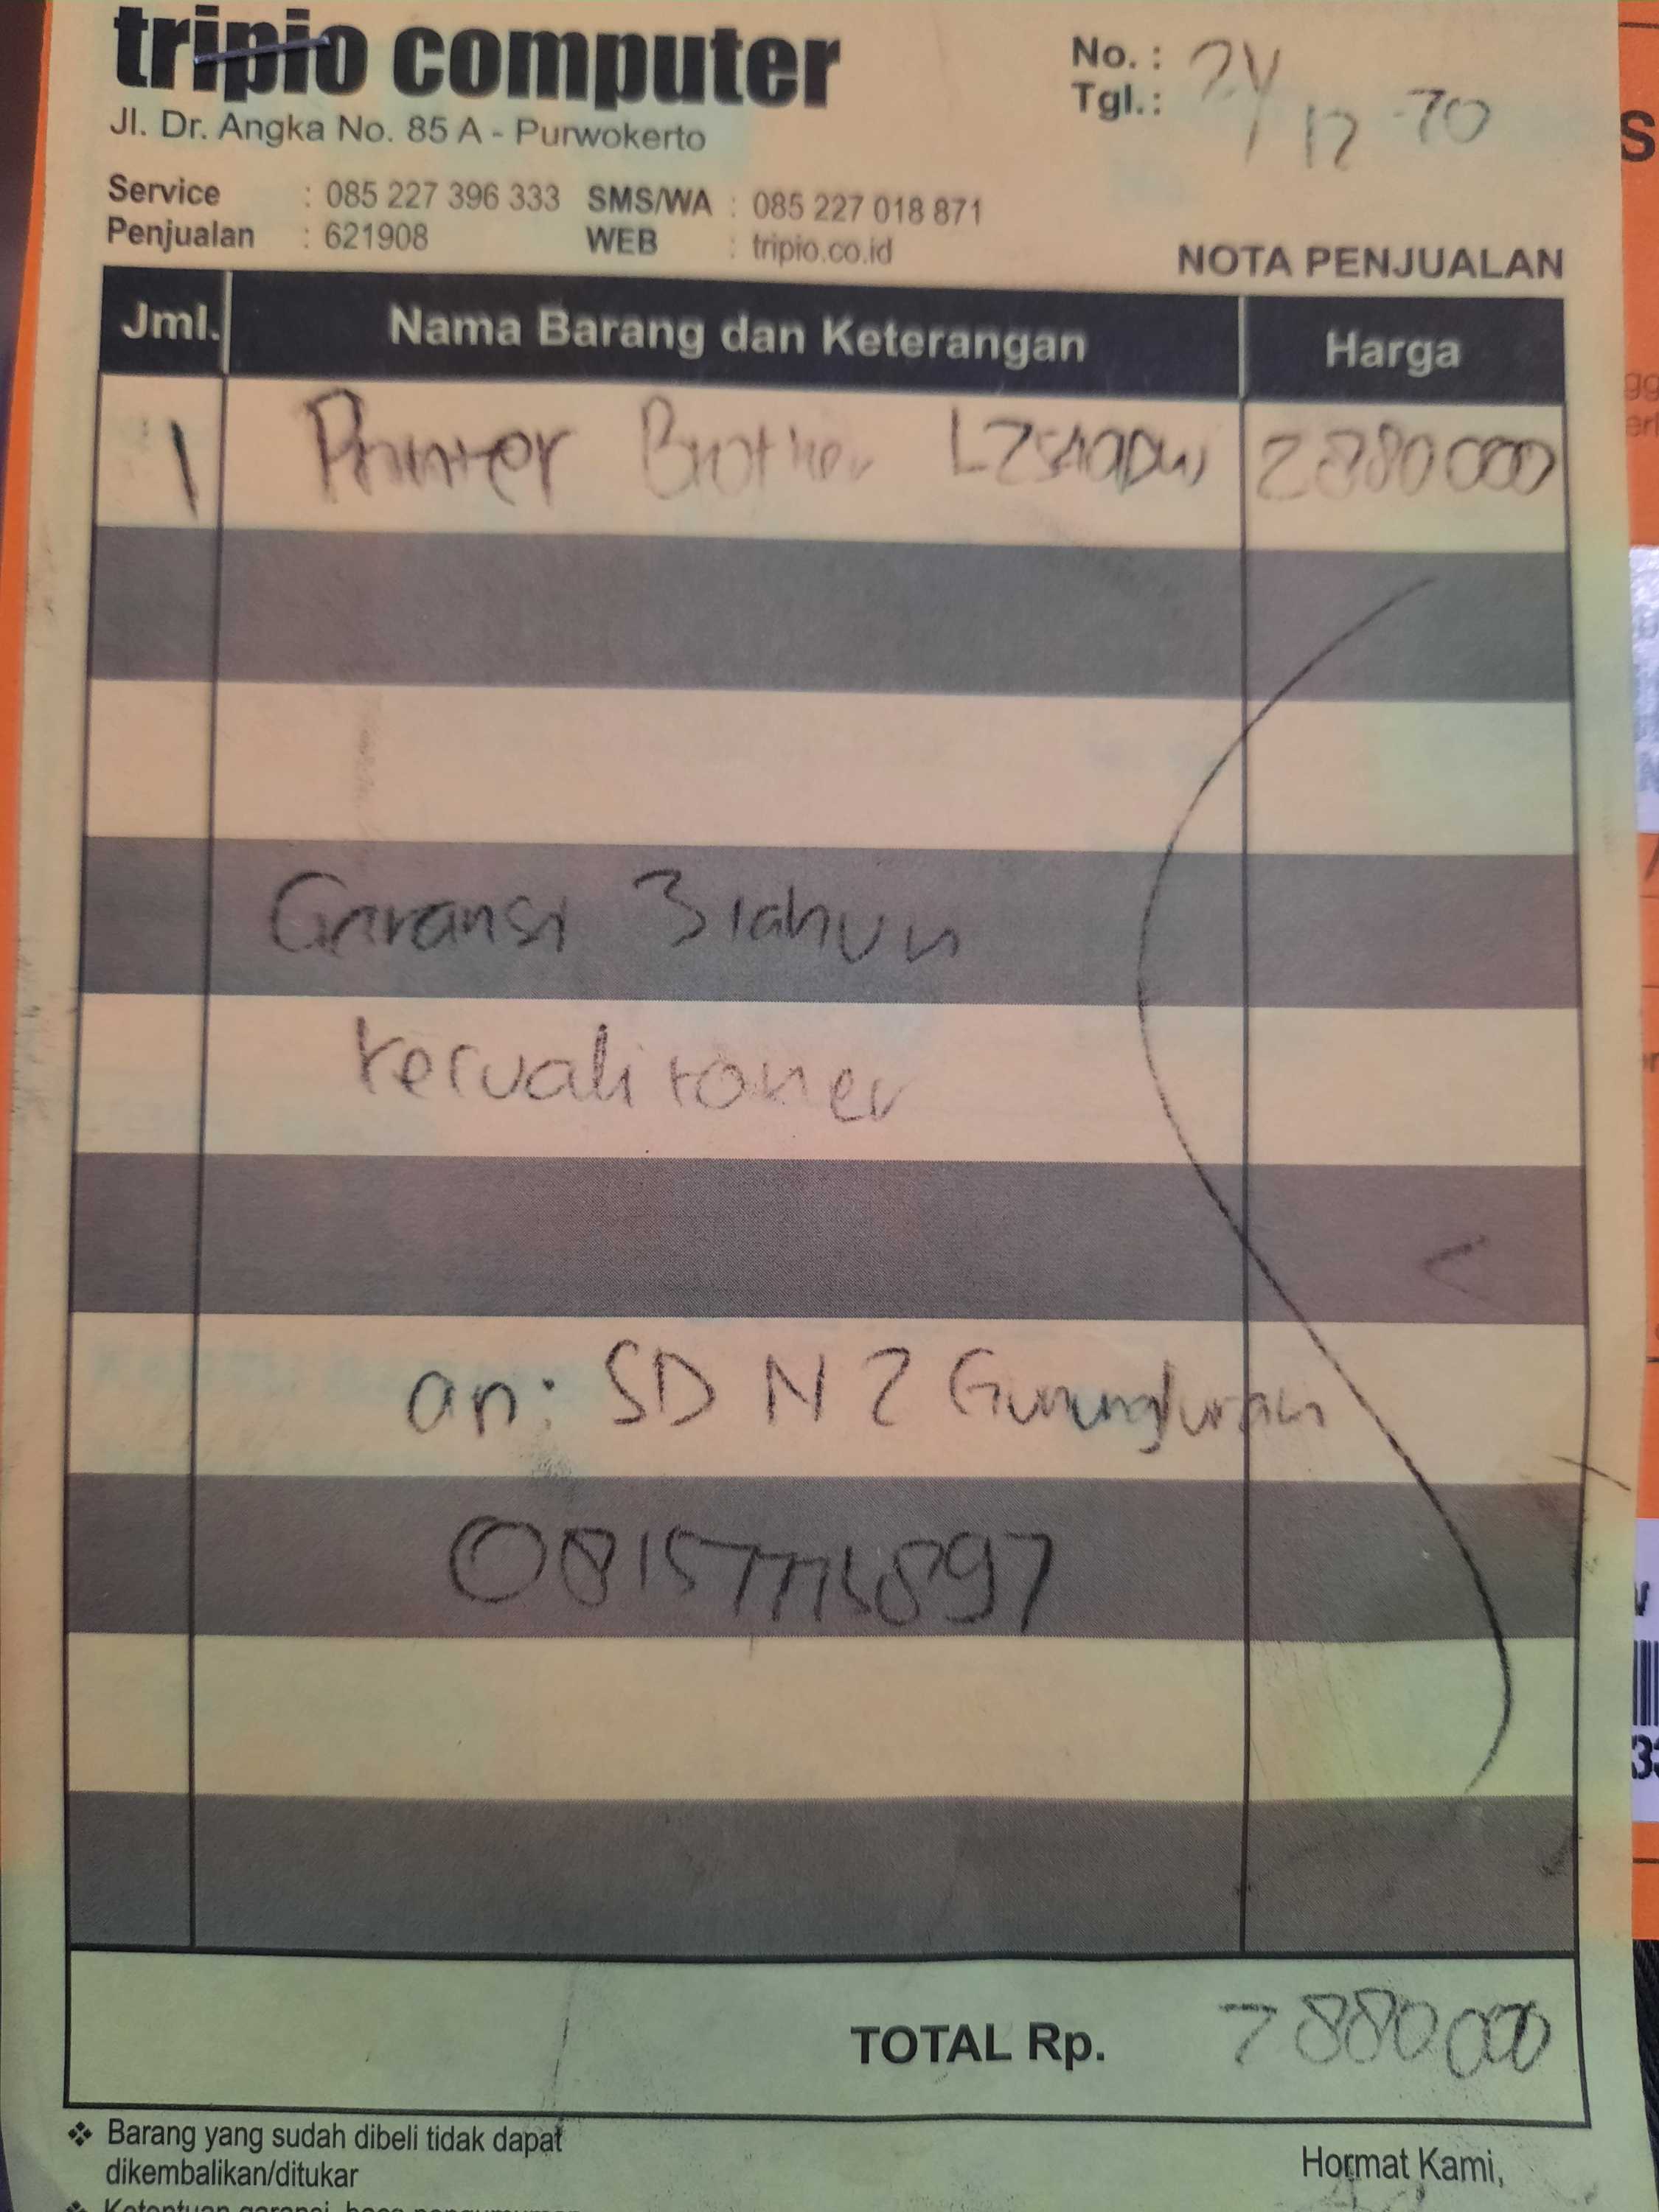 tripio computer
Jl. Dr. Angka No. 85 A - Purwokerto
No. :
Tgl. : 24/12-20
Service : 085 227 396 333 SMS/WA : 085 227 018 871
Penjualan : 621908 WEB : tripio.co.id
NOTA PENJUALAN
Jml. Nama Barang dan Keterangan Harga
1 Printer Brother L2540DW 2880000
Garansi 3 tahun
kecuali toner
an: SD N 2 Gununglurah
TOTAL Rp. 2880000
❖ Barang yang sudah dibeli tidak dapat
dikembalikan/ditukar
Hormat Kami,